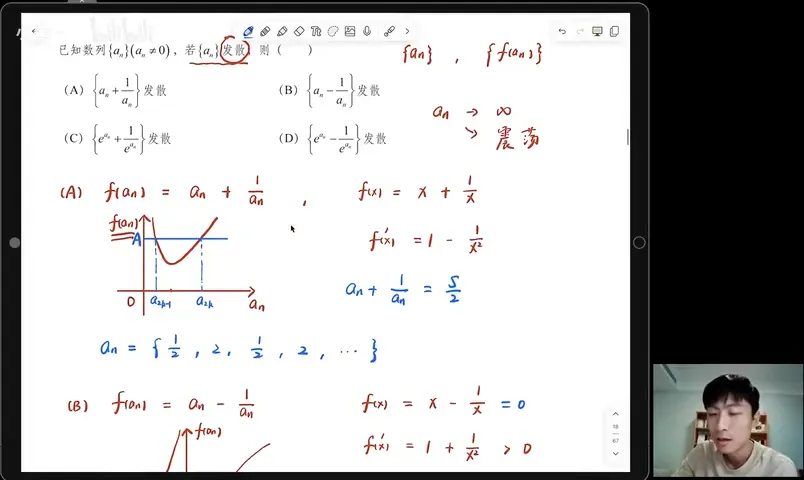 已知数列{aₙ}(aₙ≠0)，若{aₙ}发散，则（　　）
(A) {aₙ + 1/aₙ}发散
(B) {aₙ - 1/aₙ}发散
(C) {e^{aₙ} + 1/e^{aₙ}}发散
(D) {e^{aₙ} - 1/e^{aₙ}}发散
{aₙ} , {f(aₙ)}
aₙ → ∞
↘ 震荡
(A) f(aₙ) = aₙ + 1/aₙ , f(x) = x + 1/x
f'(x) = 1 - 1/x²
aₙ + 1/aₙ = 5/2
f(aₙ)
A
0 a₂ₖ₋₁ a₂ₖ aₙ
aₙ = { 1/2 , 2, 1/2 , 2, ⋯ }
(B) f(aₙ) = aₙ - 1/aₙ f(x) = x - 1/x = 0
f(aₙ)
f'(x) = 1 + 1/x² > 0
18
67